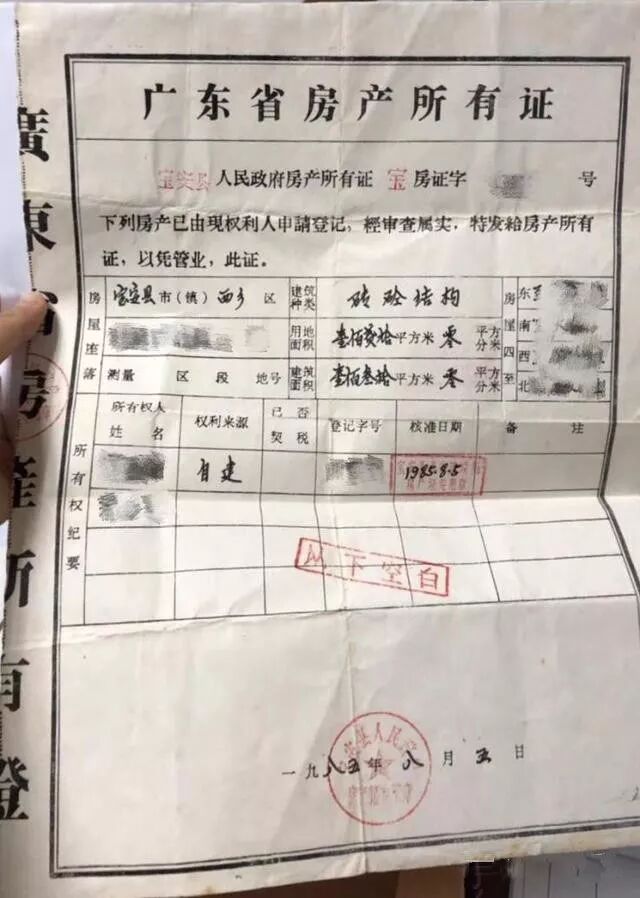 广东省房产所有证
宝安县人民政府房产所有证 宝房证字 号
下列房产已由现权利人申請登记，經审查属实，特发給房产所有
证，以凭管业，此证。
房屋座落 宝安县市(镇)西乡区 建筑种类 砖砼结构 房屋四至 东
用地面积 壹佰贰拾平方米零平方分米 南
西
测量 区 段 地号 建筑面积 壹佰叁拾平方米零平方分米 北
所有权纪要
所有权人姓名 权利来源 已否契税 登记字号 核准日期 备注
自建 1985.8.5
以下空白
一九八五年八月五日
县人民
廣東省房産所有證